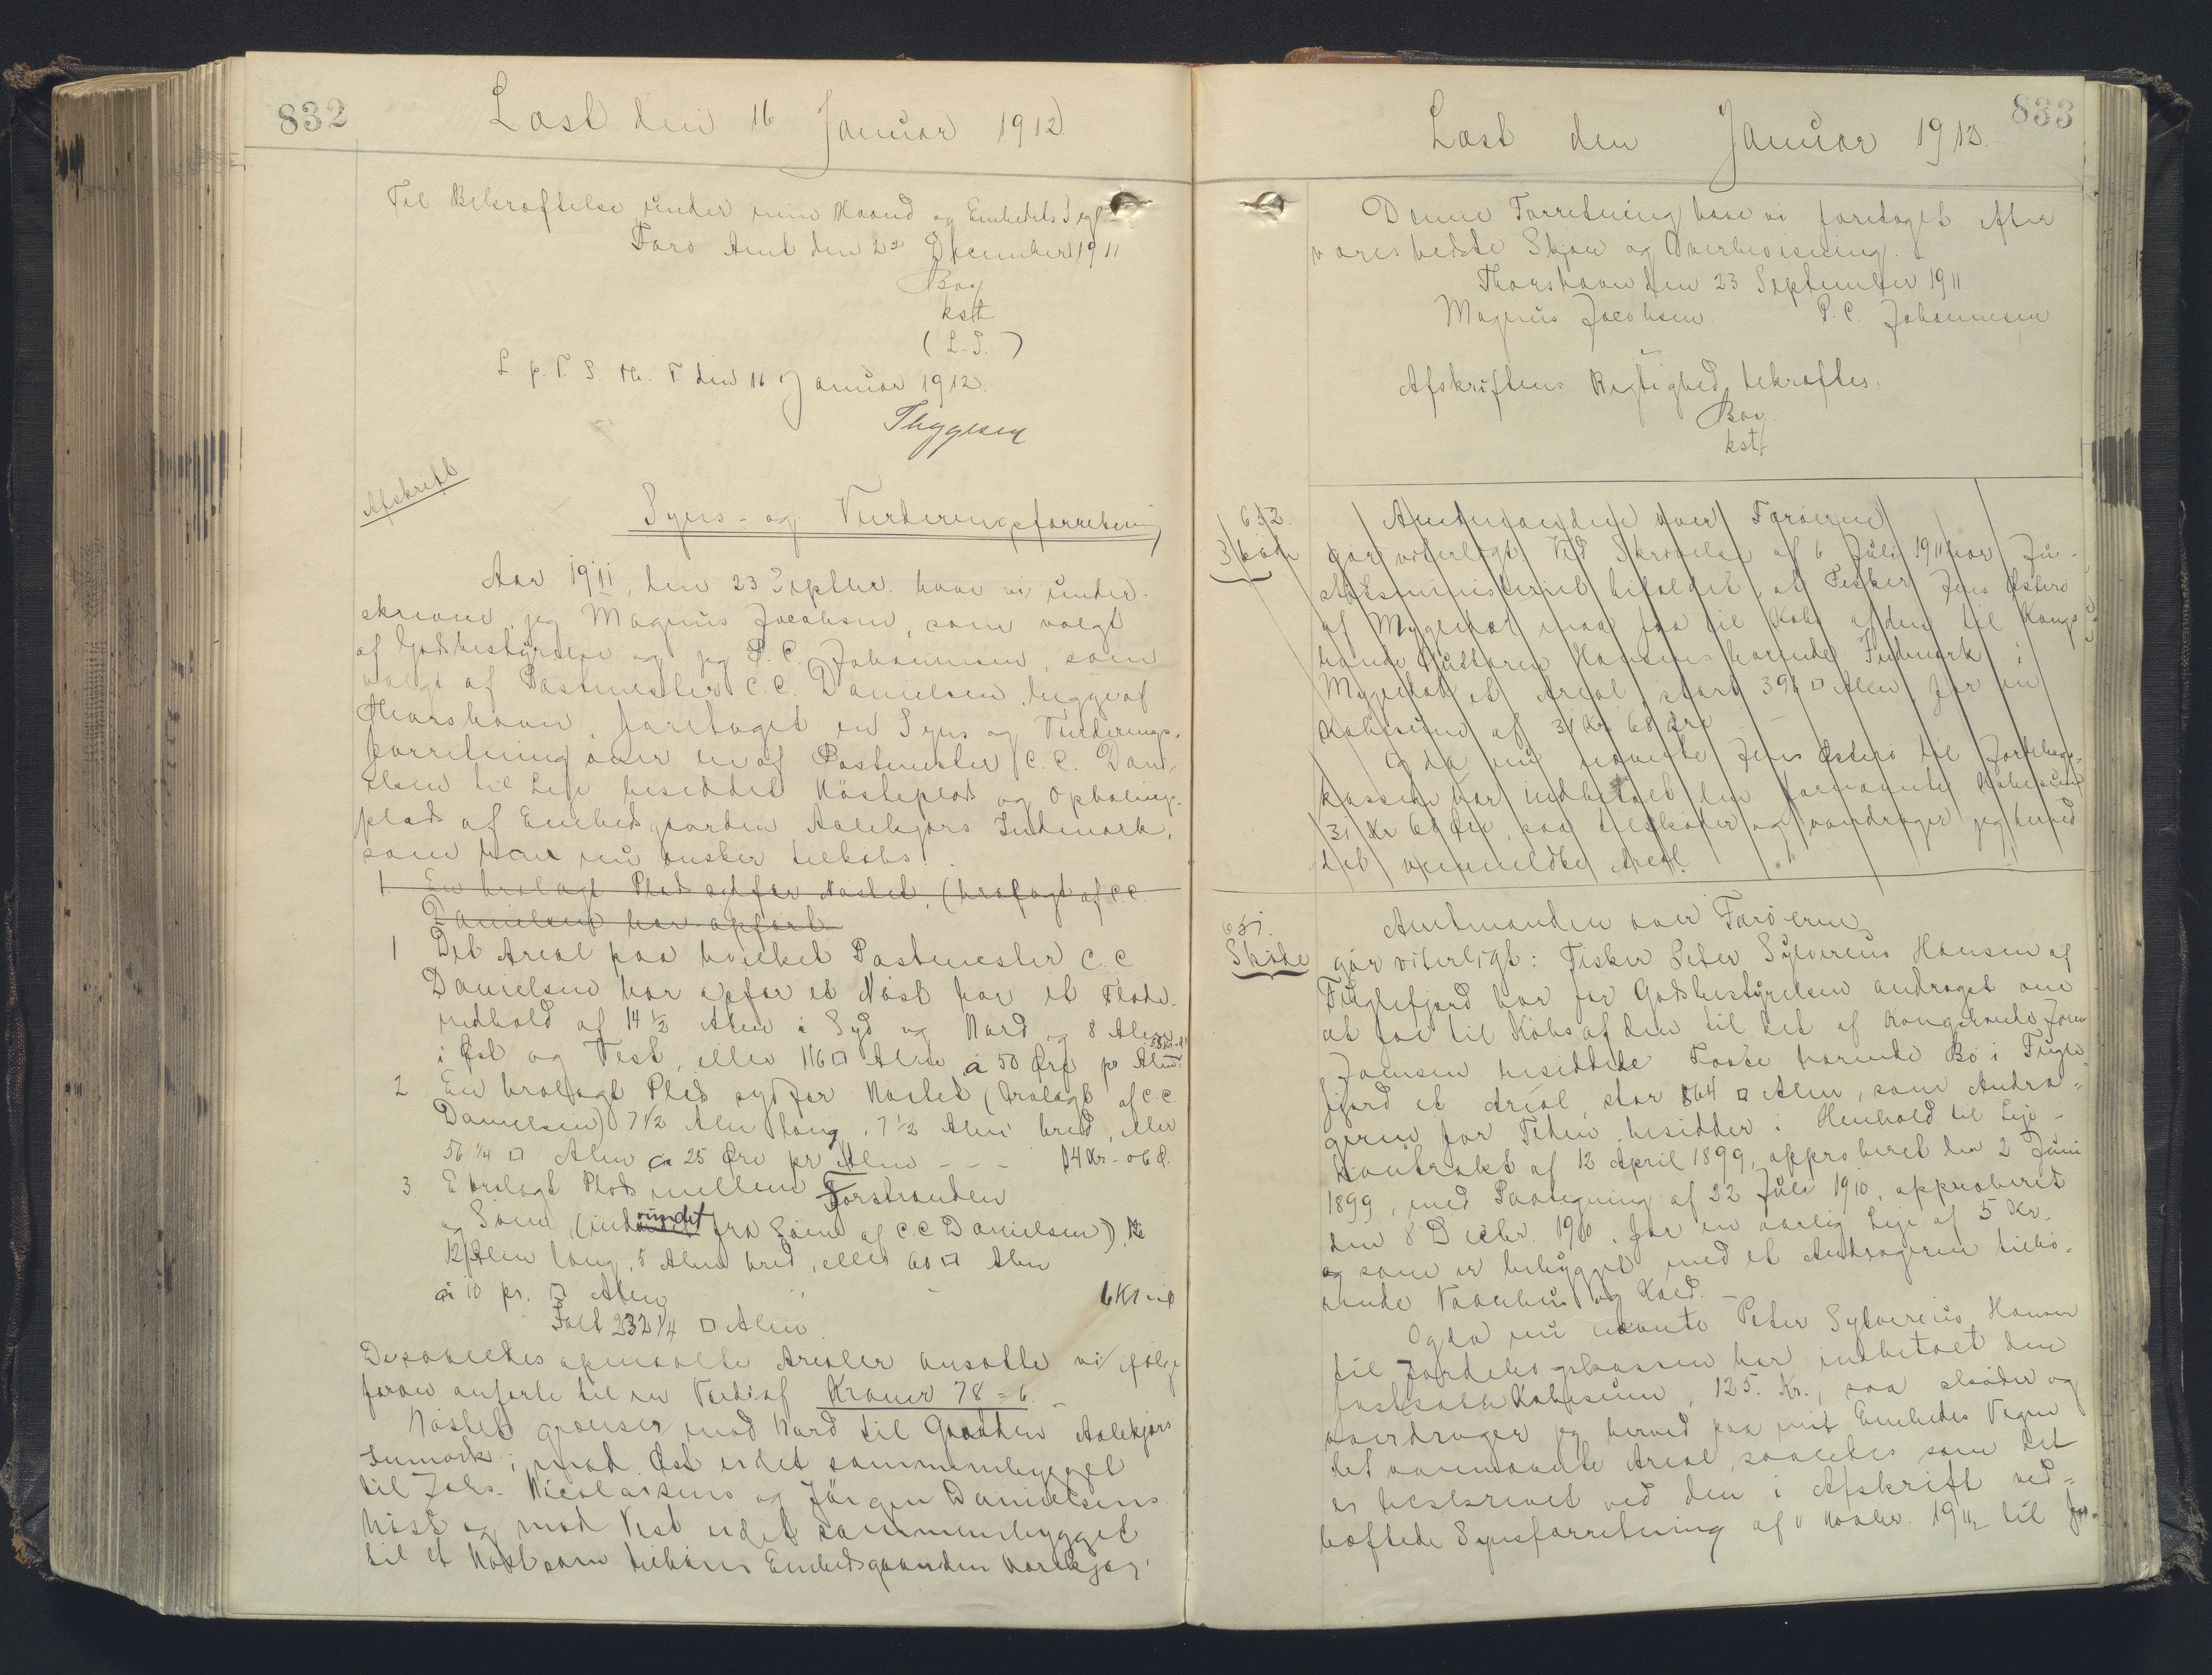 832
Læst den 16 Januar 1912
Til Bekræftelse under min Haand og Embedets Segl
Færø Amt den 22 December 1911
Bay
kst
(L.S.)
L. p. T. S. Th. T. den 16 Januar 1912.
Thygesen
Afskrift
Syns- og Vurderingsforretning
Aar 1911, den 23 Septbr. have vi under-
skrevne, jeg Magnus Jacobsen, som valgt
af Godsbestyrelsen og jeg P. C. Johannesen, som
valgt af Postmester C. C. Danielsen, begge af
Thorshavn, foretaget en Syns og Vurderings-
forretning over en af Postmester C. C. Dani-
elsen til Leje besiddet Nøsteplads og Ophalings-
plads af Embedsgaarden Aalekjærs Indmark,
som han nu ønsker tilkøbs.
1 En brolagt Plads sydfor Nøstet, (brolagt af C.C.
Danielsen) har opført
1 Det Areal paa hvilket Postmester C. C
Danielsen har opfør et Nøst har et Flade-
indhold af 14 1/2 Alen i Syd og Nord og 8 Alen
i Øst og Vest, eller 116 □ Alen a 50 Øre pr Alen
2 En brolagt Plads sydfor Nøstet (brolagt af C.C.
Danielsen) 7 1/2 Alen lang, 7 1/2 Alen bred, eller
56 1/4 □ Alen a 25 Øre pr Alen - - - 14 Kr - 06 Ø.
3 E brolagt Plads mellem Forstranden
og Søen (indvundet fra Søen af C.C Danielsen),
12 Alen lang, 5 Alen bred, eller 60 □ Alen
a 10 pr. □ Alen " - 6 Kr
Ialt 232 1/4 □ Alen.
Desaaledes opmaalte Arealer ansatte vi ifølge
foran anførte til en Værdi af Kroner 78 = 6.
Nøstet grænser mod Nord til Gaarden Aalekjærs
Inmark; mod Øst er det sammenbygget
til Johs. Nicolaisens og Jørgen Danielsens
Nøst og mod Vest er det sammenbygget
til et Nøst som tilhører Embedsgaarden
833
Læst den Januar 1912.
Denne Forretning have vi foretaget efter
vores bedste Skjøn og Overbevisning.
Thorshavn den 23 September 1911
Magnus Jacobsen. P. C. Johannesen
Afskriftens Rigtighed bekræftes.
Bay
kst
632.
Skøde
Amtmanden over Færøerne
gør viterligt: Ved Skrivelse af 6 Juli 1911 har Ju-
stitsministeriet bifaldet, at Fisker Jens Østerø
af Mygledal maa faa til Købs af den til Kongs
bonde Guttorm Hansens hørende Indmark i
Mygledal et Areal, stort 396 □ Alen, for en
Købesum af 31 Kr 68 Øre -
Og da nu nævnte Jens Østerø til Jordebogs-
kassen har indbetalt den fornævnte Købesum
31 Kr 68 Øre, saa tilskøder og overdrager jeg herved
det ommeldte Areal.
651.
Skøde
Amtmanden over Færøerne
gør viterligt: Fisker Peter Sylverius Hansen af
Fuglefjord har for Godsbestyrelsen andraget om
at faa til Købs af den til det af Kongsbonde Joen
Joensen besiddede Fæste hørende Bø i Fugle-
fjord et Areal, stor 864 □ Alen, som Andra-
geren for Tiden besidder i Henhold til Leje-
kontrakt af 12 April 1899, approberet den 2 Juni
1899, med Paategning af 22 Juli 1910, approberet
den 8 Decbr. 1910, for en aarlig Leje af 5 Kr.
og som er bebygget med et Andrageren tilhø-
rende Vaanhus og Kæd. -
Og da nu nævnte Peter Sylverius Hansen
til Jordebogskassen har indbetalt den
fastsatte Købesum, 125. Kr., saa skøder og
overdrager jeg herved paa mit Embedes Vegne
det ovennævnte Areal, saaledes som det
er beskrevet ved den i Afskrift ved-
hæftede Synsforretning af 11 Novbr. 1911 til